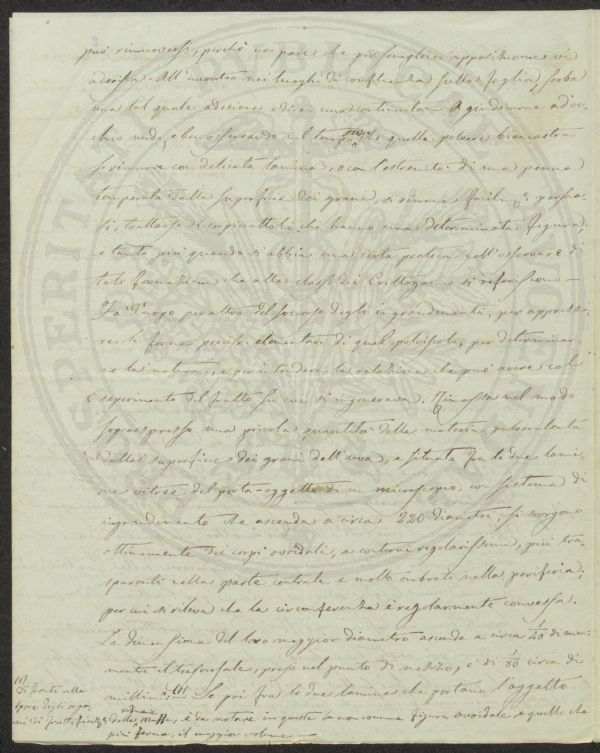 può rimuoversi, perchè non pare che per semplice apposizione vi
aderisca. All'incontro nei luoghi di confluenza sulla foglia, serba
una tal quale adesione e direi una continuità — A giudicarne ad oc-
chio nudo, e ben osservando nel tempo che quella polvere biancastra
si rimuove con delicata lamina, o con l'estremità di una penna
temperata dalla superficie dei grani, si rimane persua-
si, trattarsi di corpicciattoli, che hanno una determinata figura;
e tanto più quando si abbia una certa pratica nell'osservare di
tali formazioni che alla classe dei Crittogami si riferiscono —
Fa d'uopo peraltro del soccorso degli ingrandimenti, per apprezza
re le forme precise elementari di quel polviscolo, per determinar-
ne la natura, e per intendere la relazione che può avere col
deperimento del frutto su cui si ingenerava. Rimossa nel modo
sopraespresso una piccola quantità della materia pulverulenta
dalla superficie dei grani dell'uva, e situata fra le due lami-
ne vitree del porta-oggetto di un microscopio, con sistema di
ingrandimento che ascenda a circa 220 diametri, si scorgono
ottimamente dei corpi ovoidali, a contorni regolarissimi, più tra-
sparenti nella parte centrale e molto ombrati nella periferia;
per cui si rileva che la circonferenza è regolarmente convessa.
La dimensione del loro maggior diametro ascende a circa 1/20 di
mentre il trasversale, preso nel punto di mezzo, è di circa di
millim: (1) Se poi fra le due lamine che portano l'oggetto
(1)
Di fronte alle
spore degli
è da notare in queste la non comune figura ovoidale, e quello che
più ferma, il maggior volume —